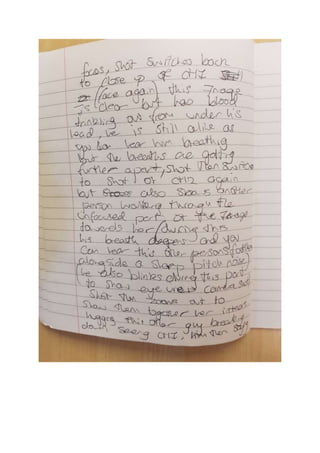 focus, shot switches back
to close up of CH1
(face again) this image
is clear but has blood
trickling out from under his
head, he is still alive as
you can hear him breathing
but the breaths are getting
further apart, shot then switches
to shot of CH2 again
but also shows another
person walking through the
unfocused part of the image
towards her/during this
his breath deepens and you
can hear this other persons
alongside a sharp pitch noise
he also blinks during this part
to show eye camera
Shot then zooms out to
show them together her
hugging this other guy breaking
down seeing CH1, him then